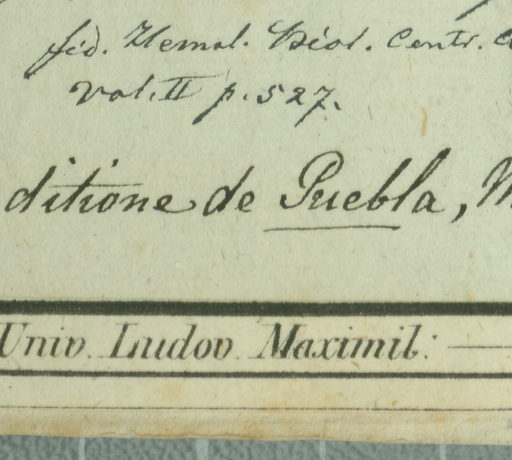 fid. Hemsl. Biol. Centr.
vol. II p. 527.
ditione de Puebla,
Univ. Ludov. Maximil: